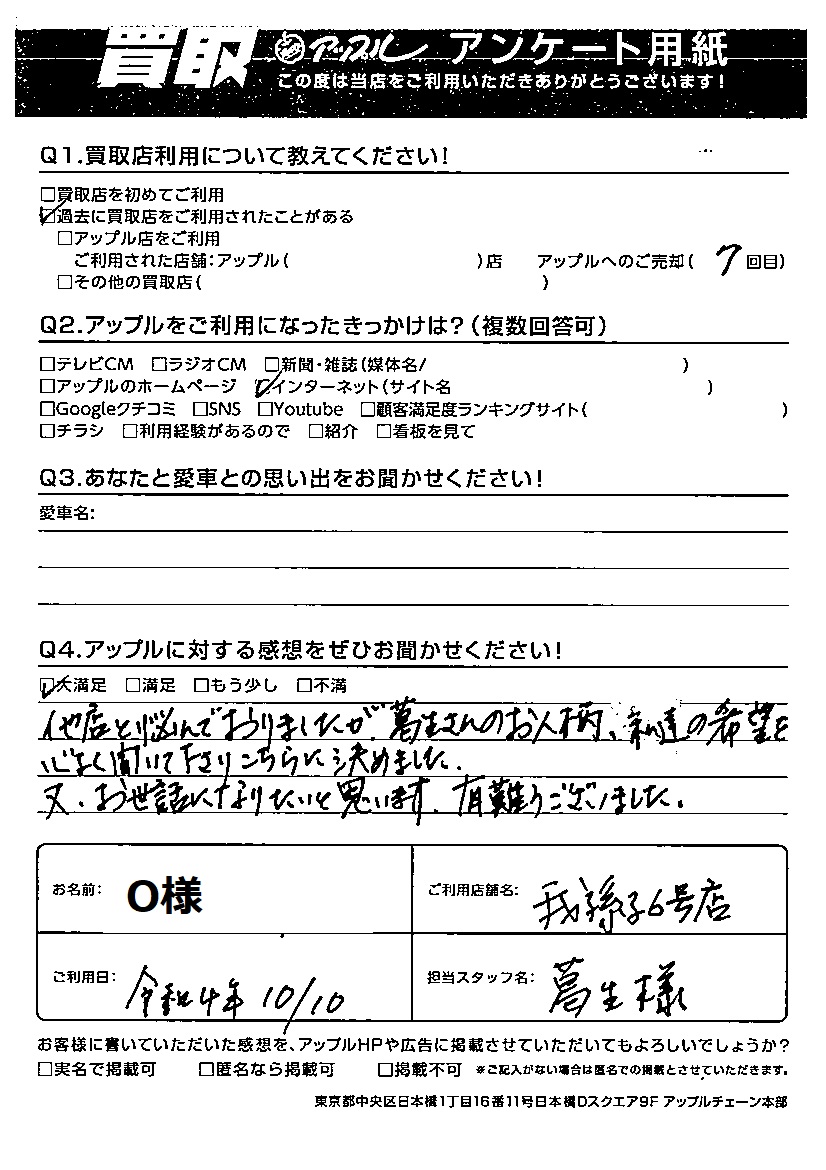 買取 アップル アンケート用紙
この度は当店をご利用いただきありがとうございます!
Q1.買取店利用について教えてください!
□買取店を初めてご利用
☑過去に買取店をご利用されたことがある
□アップル店をご利用
ご利用された店舗:アップル( )店 アップルへのご売却( 7 回目)
□その他の買取店( )
Q2.アップルをご利用になったきっかけは?(複数回答可)
□テレビCM □ラジオCM □新聞・雑誌(媒体名/ )
□アップルのホームページ ☑インターネット(サイト名 )
□Googleクチコミ □SNS □Youtube □顧客満足度ランキングサイト( )
□チラシ □利用経験があるので □紹介 □看板を見て
Q3.あなたと愛車との思い出をお聞かせください!
愛車名:
Q4.アップルに対する感想をぜひお聞かせください!
☑大満足 □満足 □もう少し □不満
他店と悩んでおりましたが、葛生さんのお人柄、私達の希望を
心よく聞いて下さりこちらに決めました。
又、お世話になりたいと思います。有難うございました。
お名前: O様 ご利用店舗名: 我孫子6号店
ご利用日: 令和4年 10/10 担当スタッフ名: 葛生様
お客様に書いていただいた感想を、アップルHPや広告に掲載させていただいてもよろしいでしょうか?
□実名で掲載可 □匿名なら掲載可 □掲載不可 ※ご記入がない場合は匿名での掲載とさせていただきます。
東京都中央区日本橋1丁目16番11号日本橋Dスクエア9F アップルチェーン本部